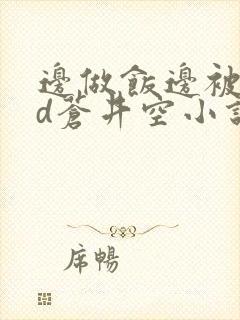 邊做飯邊被
d蒼井空小說
席暢